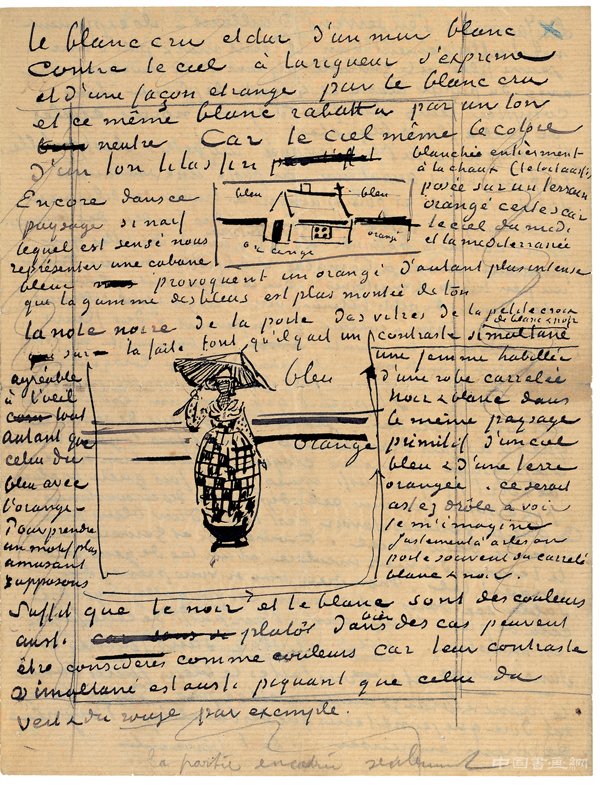 le blanc cru et dur d'un mur blanc
contre le ciel à la rigueur s'exprime
et d'une façon etrange par le blanc cru
et ce même blanc rabattu par un ton
neutre Car le ciel même le colore
d'un ton lilas fin
Encore dans ce
paysage si naif
lequel est sensé nous
représenter une cabane
blanchie entièrement
à la chaux (le toit aussi)
posée sur un terrain
orangé certes car
le ciel du midi
et la mediterranée
bleu
bleu
orangé
orangé
bleue provoquent un orangé d'autant plus intense
que la gamme des bleus est plus montée de ton
la note noire de la porte des vitres de la petite croix
sur la faite font qu'il y ait un contraste simultané
de blanc & noir
agréable
à l'oeil
tout
autant que
celui du
bleu avec
l'orangé–
Pour prendre
un motif plus
amusant
supposons
bleu
orangé
une femme habillée
d'une robe carrelée
noir & blanc dans
le même paysage
primitif d'un ciel
bleu & d'une terre
orangée. ce serait
assez drôle a voir
je m'imagine
Justement à arles on
porte souvent du carrelé
blanc & noir.
Suffit que le noir et le blanc sont des couleurs
aussi. plutôt dans bien des cas peuvent
être considerés comme couleurs car leur contraste
simultané est aussi piquant que celui du
vert & du rouge par exemple.
la partie encadrée seulement
中国書画網